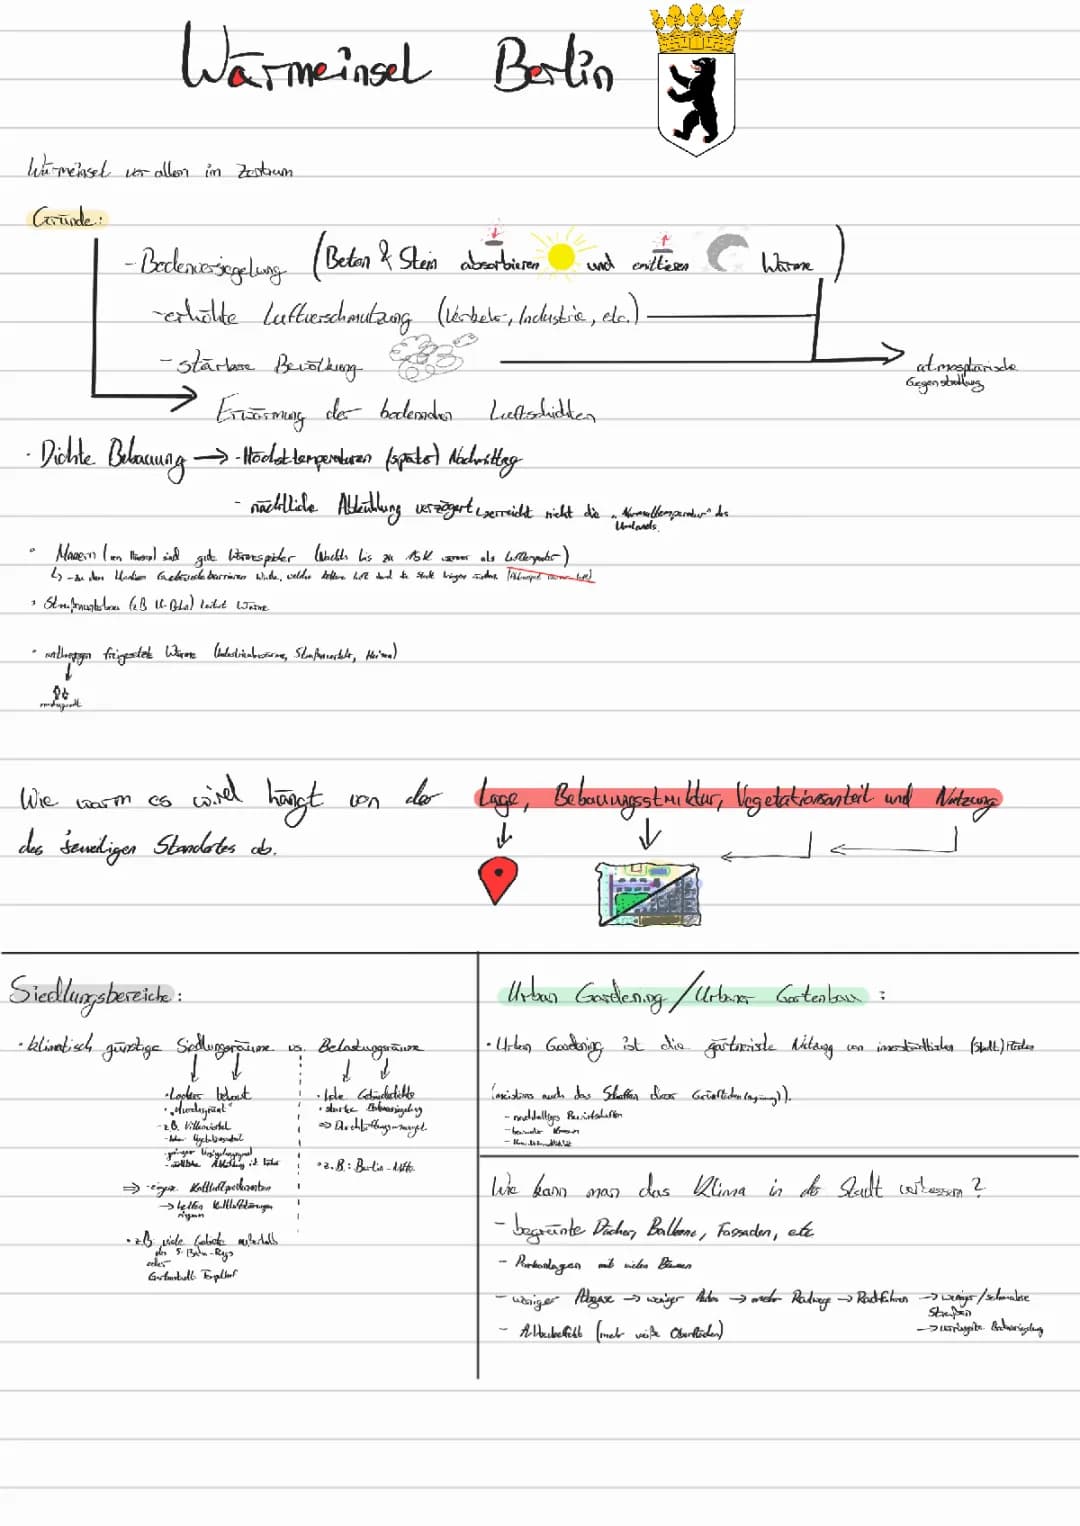 Wärmeinsel Berlin
Wärmeinsel vor allem im Zentrum
Gründe:
- Bodenversiegelung (Beton & Stein absorbieren und emittieren Wärme)
- erhöhte Luftverschmutzung (Verkehr, Industrie, etc.)
- stärkere Bewölkung
atmosphärische
Gegenstrahlung
Erwärmung der bodennahen Luftschichten
· Dichte Bebauung → - Höchsttemperaturen (später) Nachmittag
- nächtliche Abkühlung verzögert, erreicht nicht die „Normaltemperatur" des
Umlands
· Mauern sind gute Wärmespeicher (Nachts bis zu 15K wärmer als Lufttemperatur)
(z.B U-Bahn) leitet Wärme
· anthropogen freigesetzte Wärme (Industrieabwärme, Straßenverkehr, Heizen)
Wie warm es wird hängt von der Lage, Bebauungsstruktur, Vegetationsanteil und Nutzung
des jeweiligen Standortes ab.
Siedlungsbereiche:
· klimatisch günstige Siedlungsräume vs. Belastungsräume
· Locker bebaut
· „durchgrünt"
- z.B. Villenviertel
⇒ - eigene Kaltluftproduktion
· z.B. viele Gebiete außerhalb
des S-Bahn-Rings
oder
Gartenstadt Tempelhof
· hohe Gebäudedichte
· starke Bodenversiegelung
⇒ Durchlüftungsmangel
· z.B.: Berlin-Mitte
Urban Gardening / Urbaner Gartenbau :
· Urban Gardening ist die gärtnerische Nutzung von innerstädtischen (Stadt)flächen
(meistens auch das Schaffen dieser Grünflächen)).
- nachhaltiges Bewirtschaften
- bewusster Konsum
Wie kann man das Klima in der Stadt verbessern?
- begrünte Dächer, Balkone, Fassaden, etc
- Parkanlagen mit vielen Bäumen
- weniger Abgase → weniger Autos → mehr Radwege → Radfahren → weniger/schmalere
Straßen
→ verringerte Bodenversiegelung
- Albedoeffekt (mehr weiße Oberflächen)